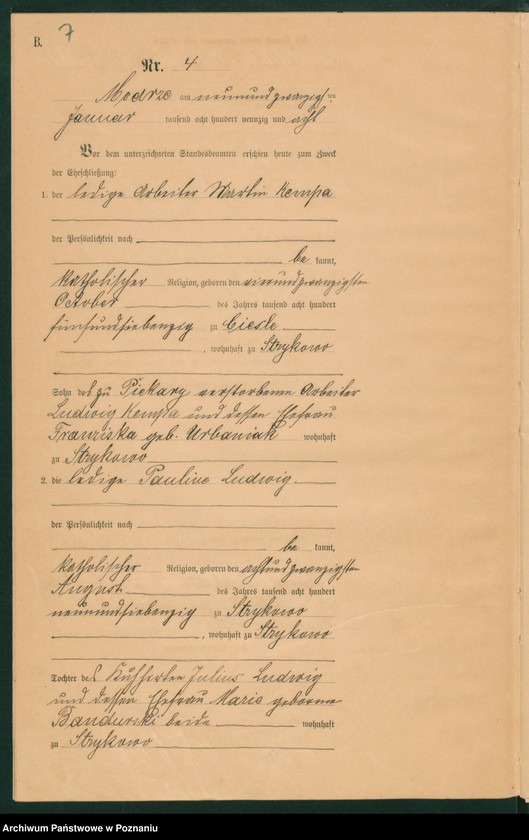 B. 7
Nr. 4
Modrze am neunundzwanzigsten
Januar tausend acht hundert neunzig und acht
Vor dem unterzeichneten Standesbeamten erschien heute zum Zweck
der Eheschließung:
1. der ledige Arbeiter Martin Kempa
der Persönlichkeit nach
be kannt,
katholischer Religion, geboren den vierundzwanzigsten
October des Jahres tausend acht hundert
fünfundsiebenzig zu Ciesle
, wohnhaft zu Strykowo
Sohn des zu Piekary verstorbenen Arbeiter
Ludwig Kempa und dessen Ehefrau
Franziska geb. Urbaniak wohnhaft
zu Strykowo
2. die ledige Pauline Ludwig
der Persönlichkeit nach
be kannt,
katholischer Religion, geboren den achtundzwanzigsten
August des Jahres tausend acht hundert
neunundsiebenzig zu Strykowo
, wohnhaft zu Strykowo
Tochter des Kuhhirten Julius Ludwig
und dessen Ehefrau Maria geborene
Bandurski beide wohnhaft
zu Strykowo
Archiwum Państwowe w Poznaniu